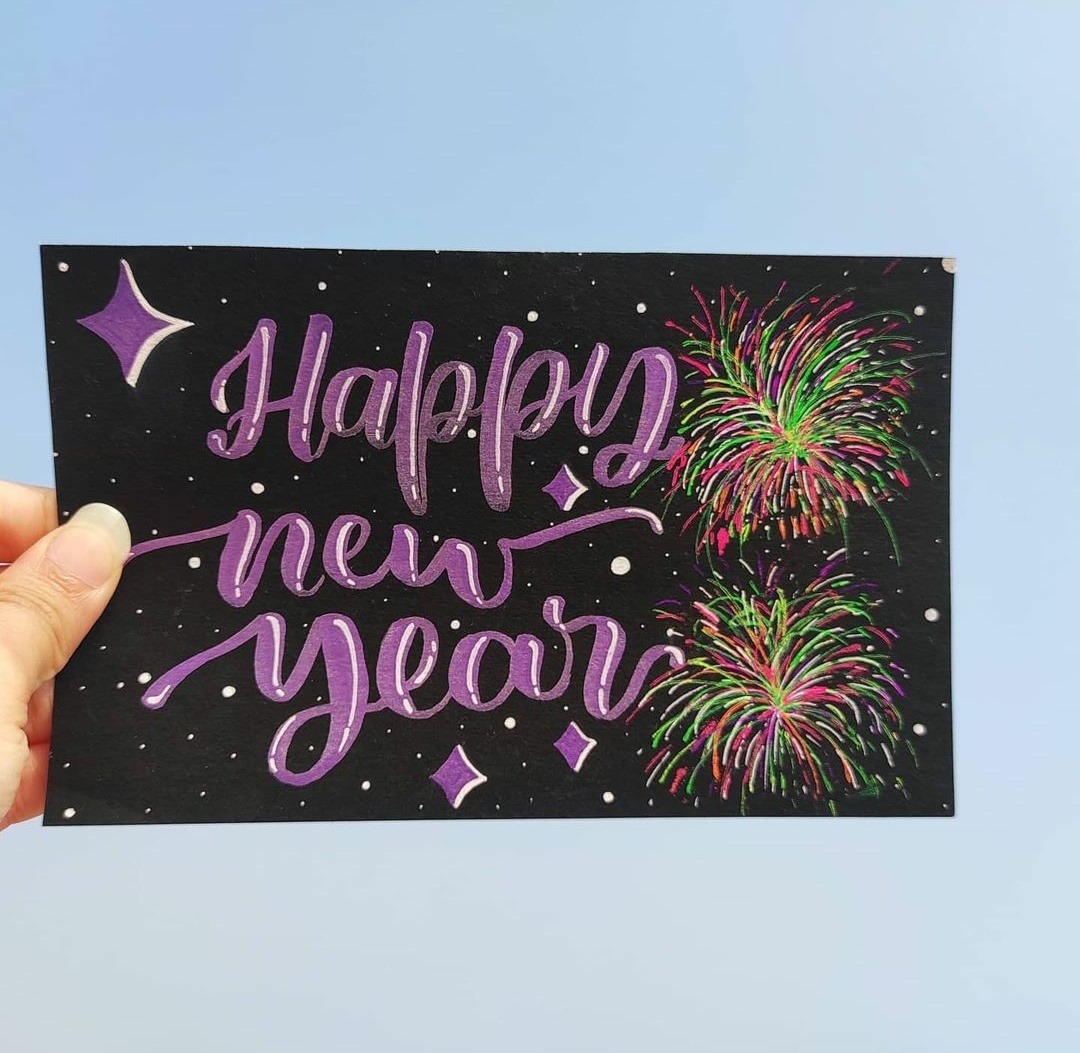 Happy
new
year